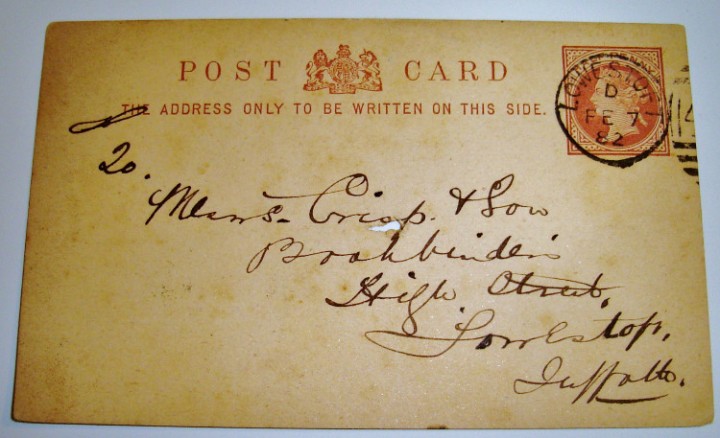 POST CARD
THE ADDRESS ONLY TO BE WRITTEN ON THIS SIDE.
LOWESTOFT
D
FE 7
82
To.
Messrs. Crisp. & Son
Bookbinders
High Street,
Lowestoft,
Suffolk.